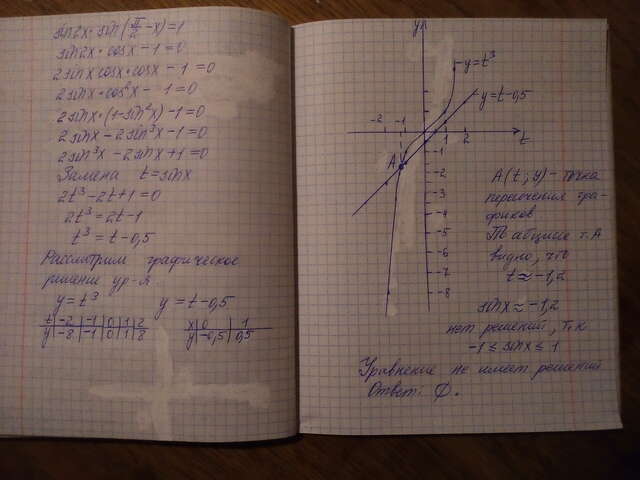 sin2x·sin(π/2-x)=1
sin2x·cosx-1=0
2sinxcosx·cosx-1=0
2sinx·cos²x-1=0
2sinx·(1-sin²x)-1=0
2sinx-2sin³x-1=0
2sin³x-2sinx+1=0
Замена t=sinx
2t³-2t+1=0
2t³=2t-1
t³=t-0,5
Рассмотрим графическое
решение ур-я.
y=t³ y=t-0,5
t -2 -1 0 1 2
y -8 -1 0 1 8
x 0 1
y -0,5 0,5
y
y=t³
y=t-0,5
-2 -1 1 2
t
A
-2
-3
-4
-5
-6
-7
-8
A(t;y)-точка
пересечения гра-
фиков
По абцисе т.А
видно, что
t≈-1,2
sinx≈-1,2
нет решений, т.к
-1≤sinx≤1
Уравнение не имеет решений
Ответ: Ø.